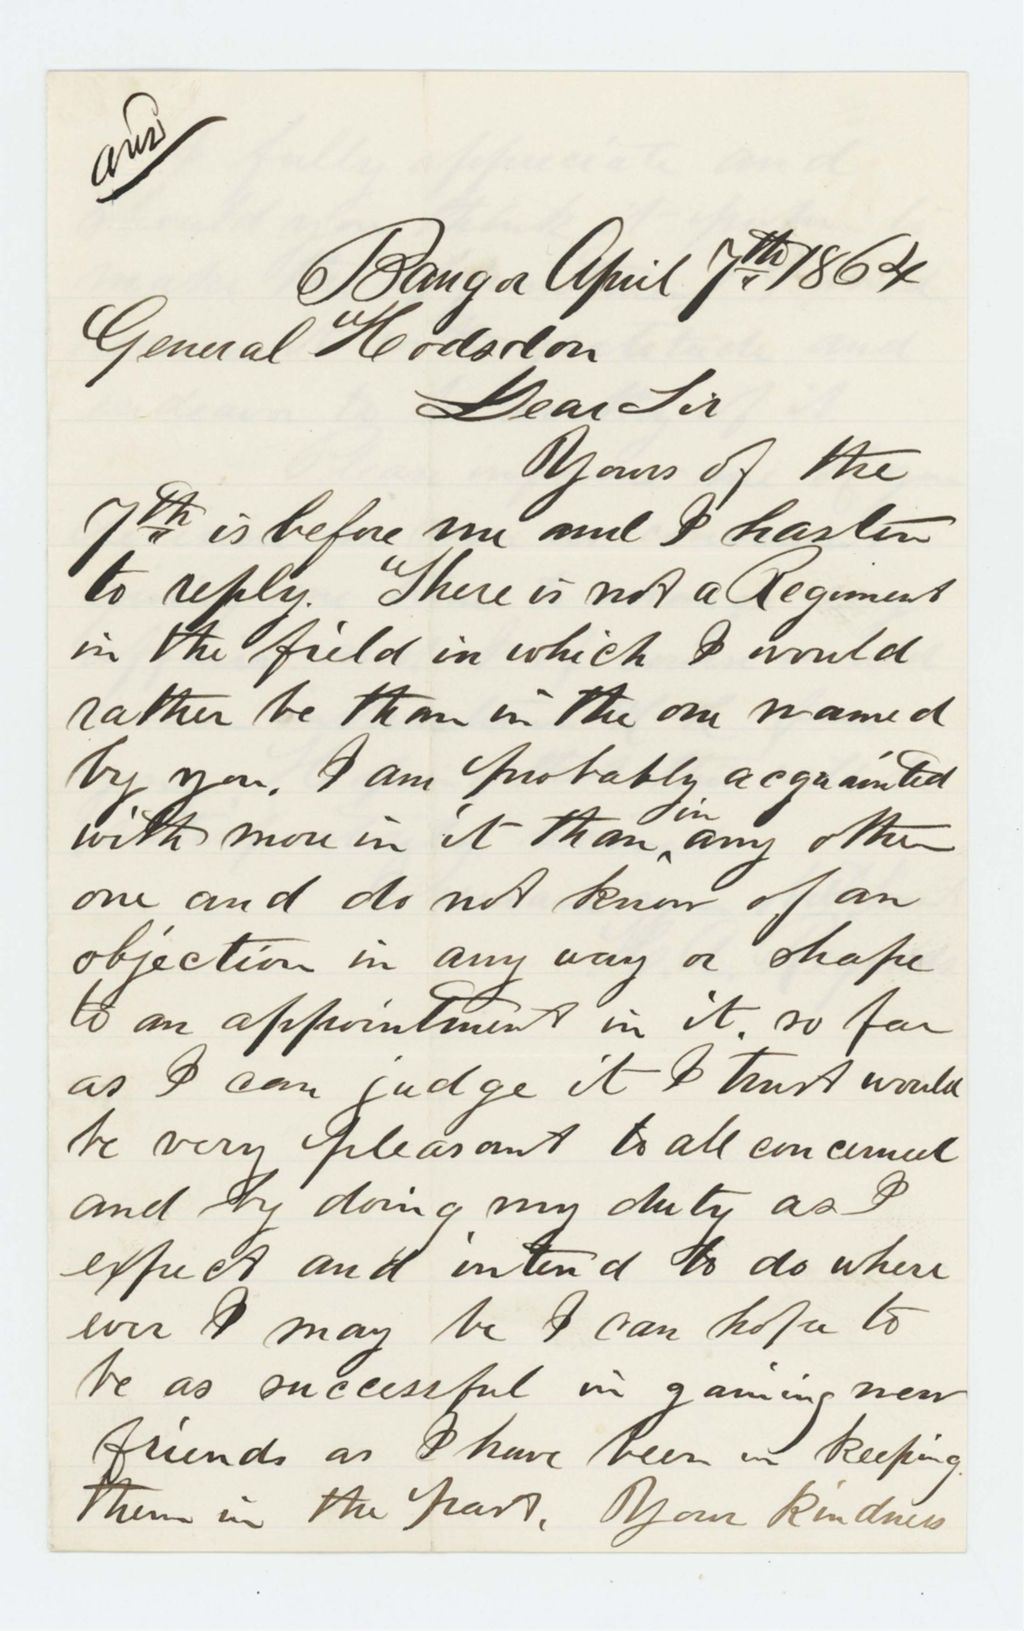 ans
Bangor April 7th 1864
General Hodsdon
Dear Sir
Yours of the
7th is before me and I hasten
to reply. There is not a Regiment
in the field in which I would
rather be than in the one named
by you. I am probably acquainted
in
with more in it than ^ any other
one and do not know of an
objection in any way or shape
to an appointment in it. so far
as I can judge it I trust would
be very pleasant to all concerned
and by doing my duty as I
expect and intend to do where
ever I may be I can hope to
be as successful in gaining new
friends as I have been in keeping
them in the past. Your kindness